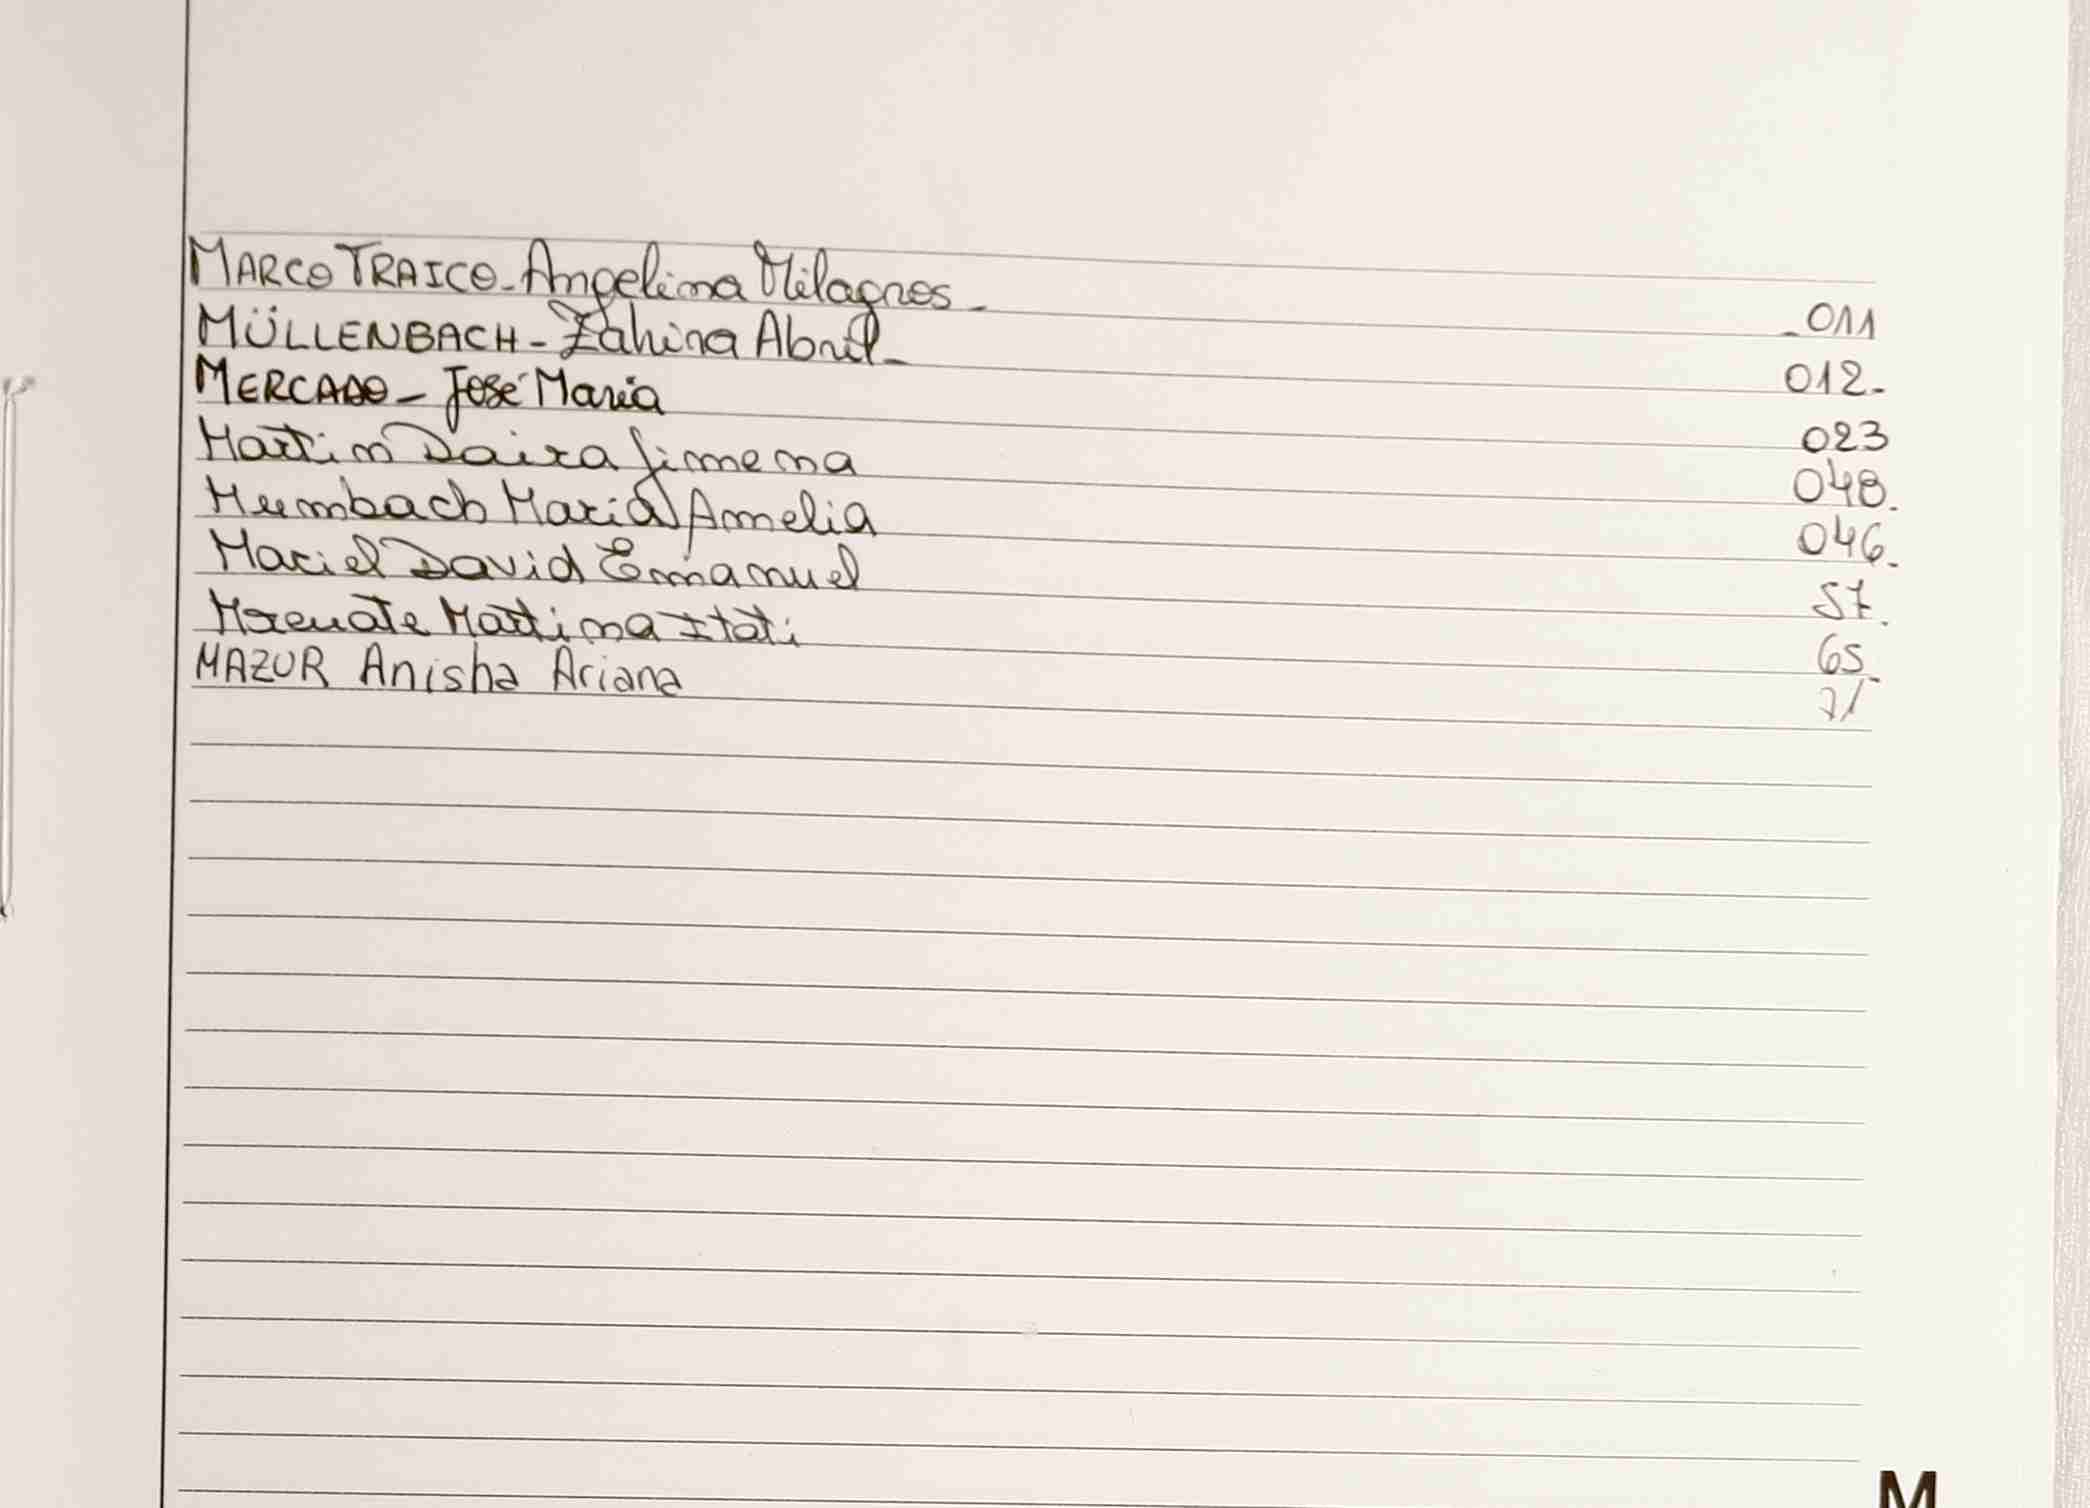 MARCO TRAICO - Angelina Milagros - - 011
MÜLLENBACH - Zahira Abril - 012-
MERCADO - José Maria 023
Martin Daira Jimena 048.
Mumbach Maria Amelia 046.
Maciel David Emmanuel 57.
Martina Itati 65-
MAZUR Anisha Ariana 71
M